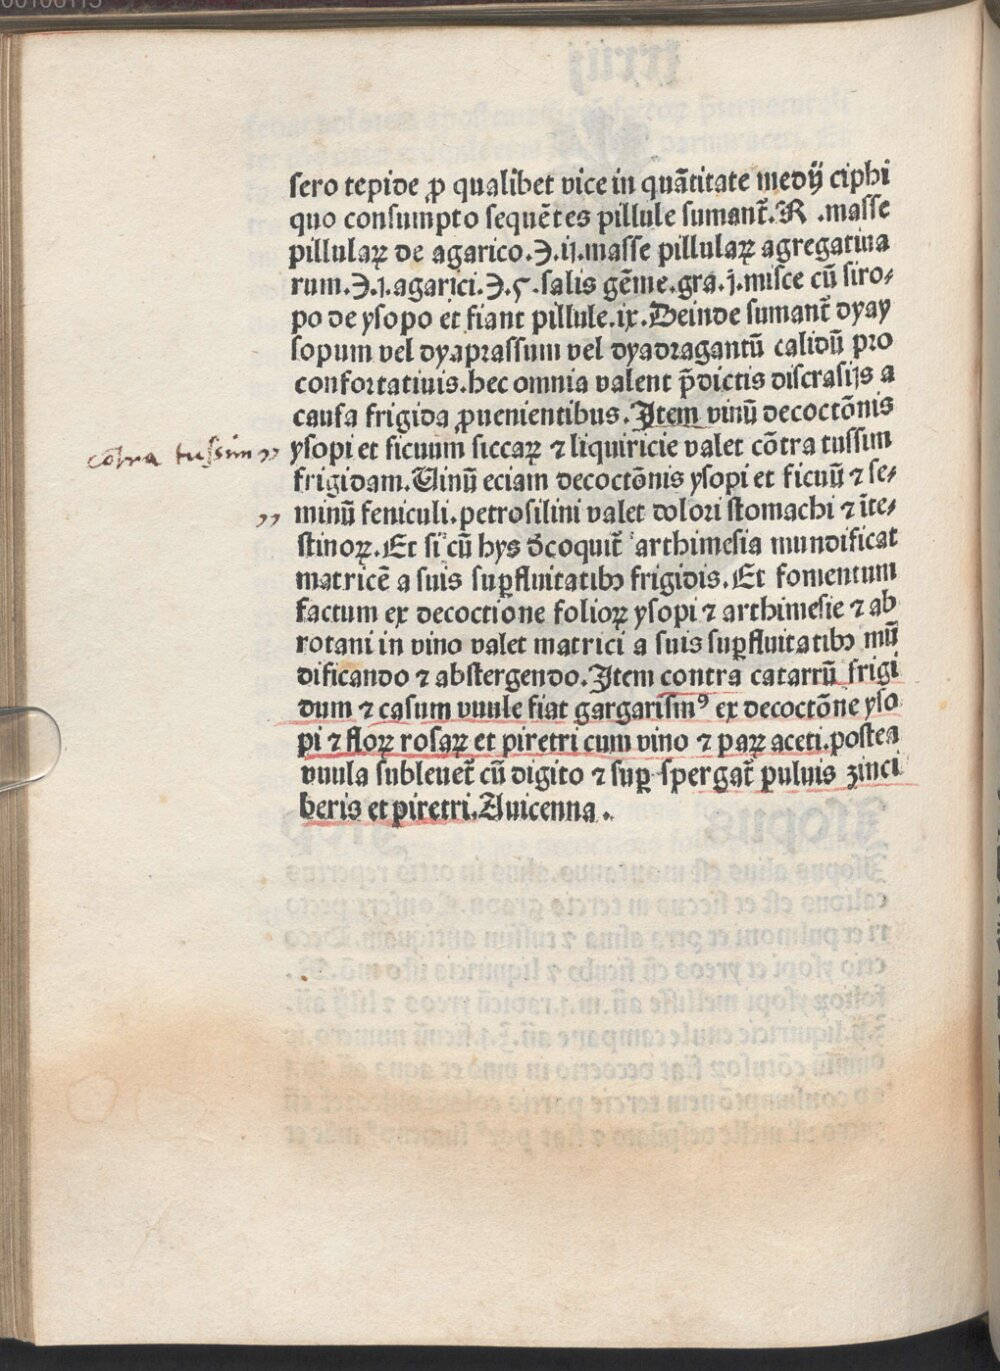 sero tepide ꝓ qualibet vice in quātitate medij ciphi
quo consumpto sequētes pillule sumant̄. ℞ .masse
pillulaꝝ de agarico.℈.ij.masse pillulaꝝ agregatiua
rum.℈.j.agarici.℈.ς.salis gēme.gra.j.misce cū siro⸗
po de ysopo et fiant pillule.ix.Deinde sumant̄ dyay
sopum vel dyaprassum vel dyadragantū calidū pro
confortatiuis.hec omnia valent p̄dictis discrasijs a
causa frigida ꝓuenientibus.Item vinū decoctōnis
cōtra tussim ,, ysopi et ficuum siccaꝝ ⁊ liquiricie valet cōtra tussim
frigidam.Uinū eciam decoctōnis ysopi et ficuū ⁊ se⸗
,, minū feniculi.petrosilini valet dolori stomachi ⁊ īte⸗
stinoꝝ.Et si cū hys d̄coquit̄ arthimesia mundificat
matricē a suis suꝑfluitatibꝫ frigidis.Et fomentum
factum ex decoctione folioꝝ ysopi ⁊ arthimesie ⁊ ab
rotani in vino valet matrici a suis suꝑfluitatibꝫ mū
dificando ⁊ abstergendo.Item contra catarrū frigi
dum ⁊ casum vuule fiat gargarismꝰ ex decoctōne yso
pi ⁊ floꝝ rosaꝝ et piretri cum vino ⁊ paꝝ aceti.postea
vuula subleuet̄ cū digito ⁊ suꝑ spergat̄ puluis zinci
beris et piretri.Auicenna.